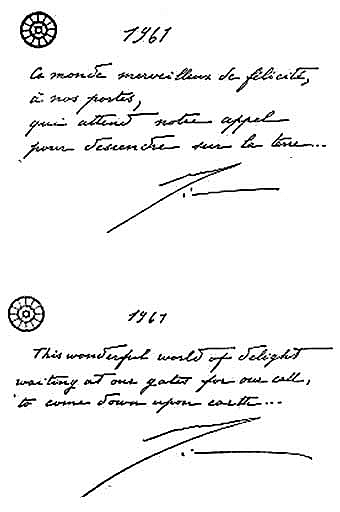 1961
Ce monde merveilleux de félicité,
à nos portes,
qui attend notre appel
pour descendre sur la terre...
1961
This wonderful world of delight
waiting at our gates for our call,
to come down upon earth...